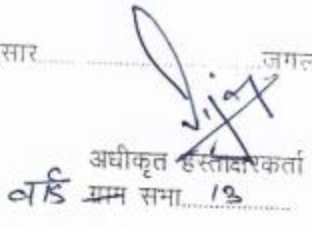 सार.................... जगल
अधीकृत हस्ताक्षरकर्ता
वार्ड ग्राम सभा 13